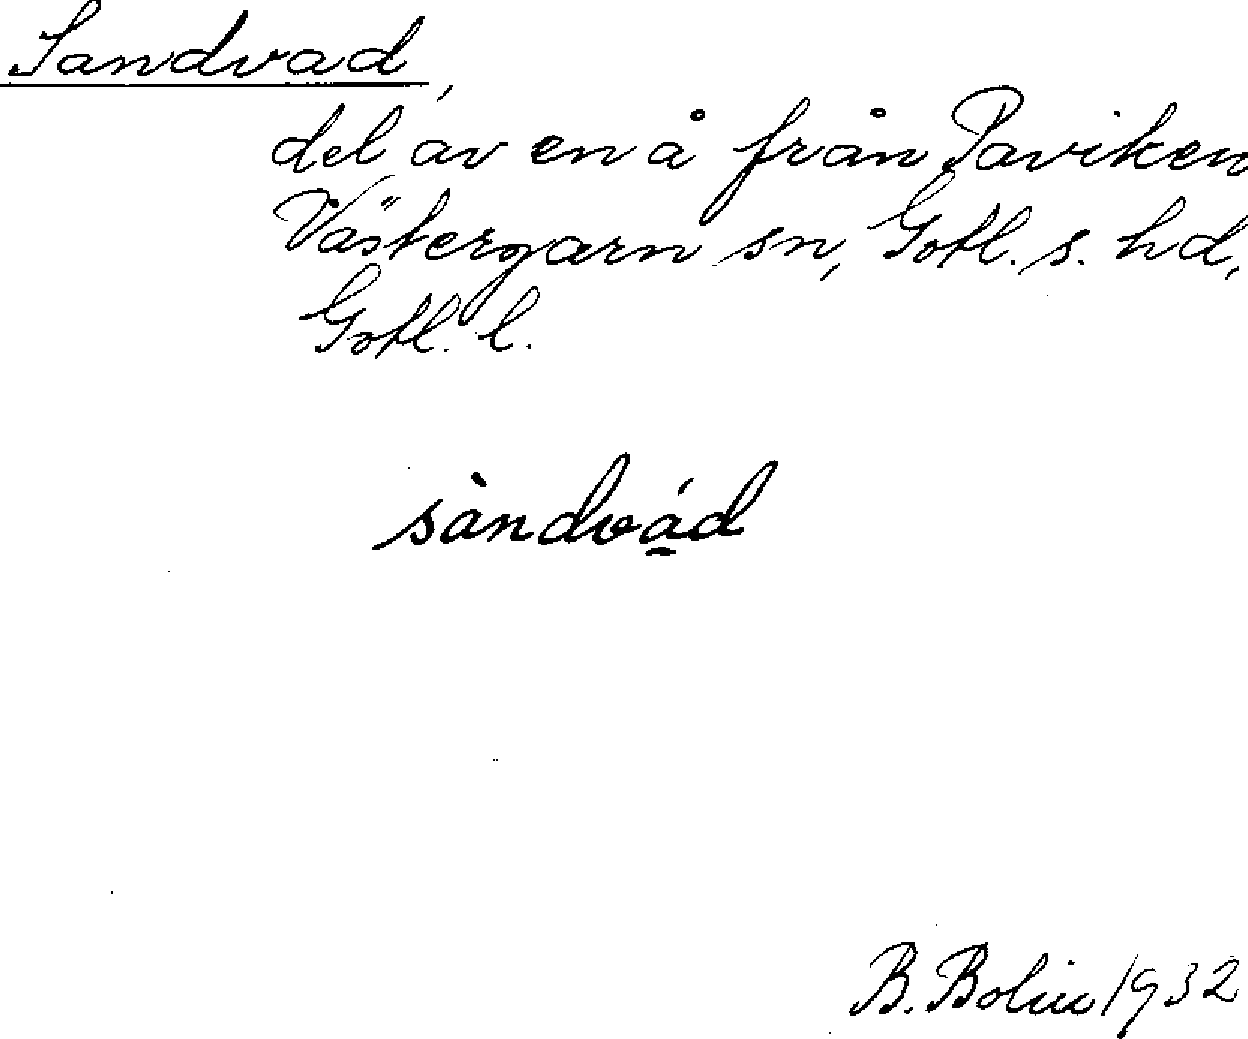 Sandvad,
del av en å från Paviken
Västergarn sn, Gotl. s. hd,
Gotl. l.
sàndvá̱d
B. Bolin 1932